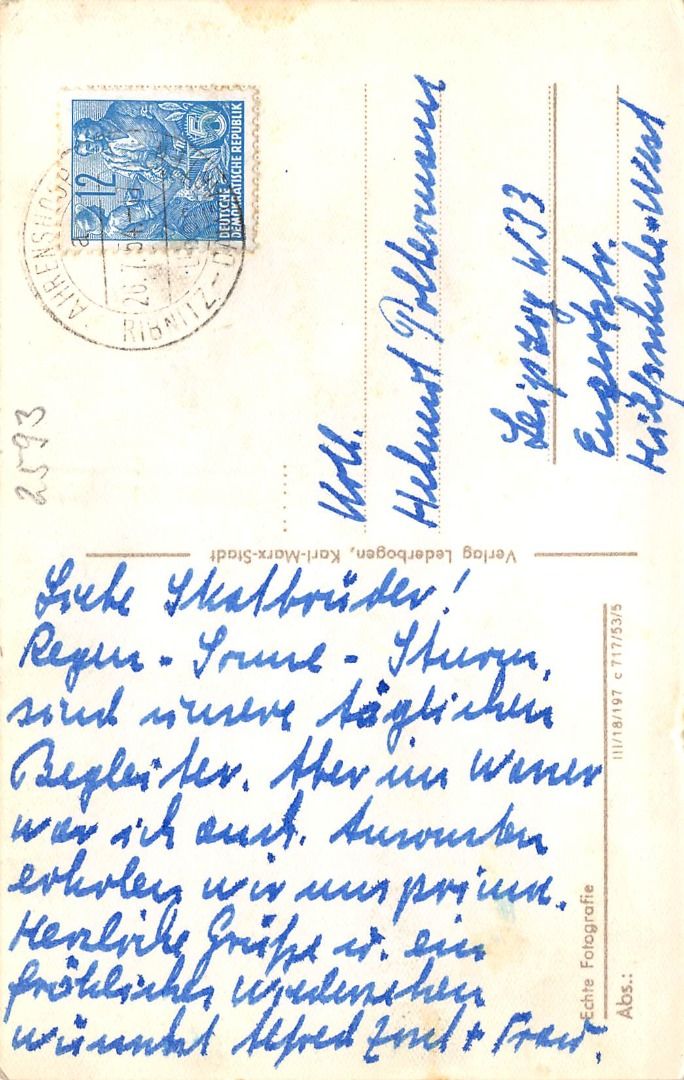 Liebe Skatbrüder!
Regen - Sonne - Sturm,
sind unsere täglichen
Begleiter. Aber im Wasser
war ich auch. Ansonsten
erholen wir uns prima.
Herzliche Grüße u. ein
fröhliches Wiedersehen
wünscht Alfred + Frau.
Koll.
Helmut
Leipzig W33
Engertstr.
Hilfsschule-West
12 5
DEUTSCHE
DEMOKRATISCHE REPUBLIK
AHRENSHOOP
RIBNITZ-
2593
Verlag Lederbogen, Karl-Marx-Stadt
III/18/197 c 717/53/5
Echte Fotografie
Abs.: